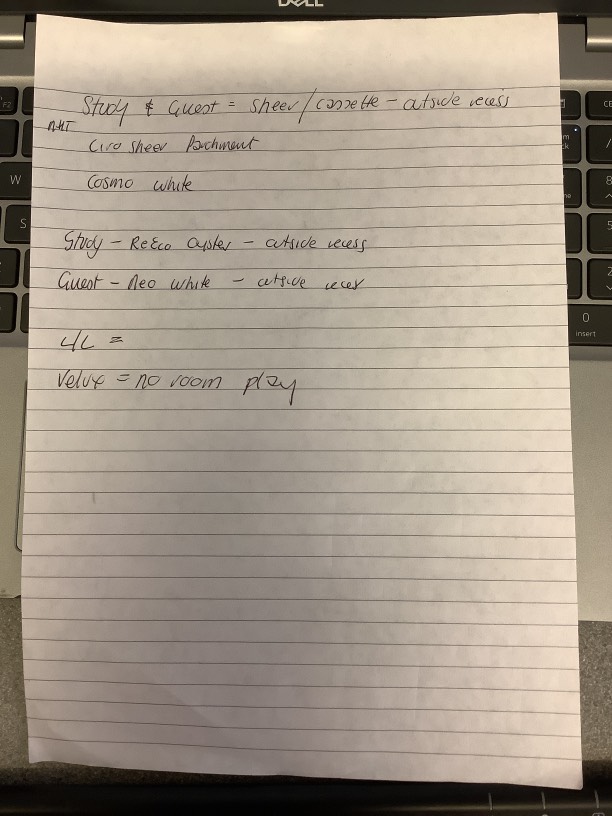 DELL
Study & Guest = Sheer/Cassette - outside recess
Ciro Sheer Parchment
Cosmo white
Study - ReEco Oyster - outside recess
Guest - Neo white - outside recess
L/L =
Velux = no room play
F2
W
S
0
insert